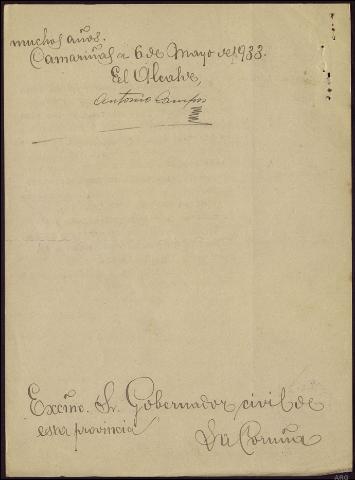 muchos años.
Camariñas a 6 de Mayo de 1933.
El Alcalde,
Antonio Campos
Excmo. Sr. Gobernador civil de
esta provincia
La Coruña
ARG